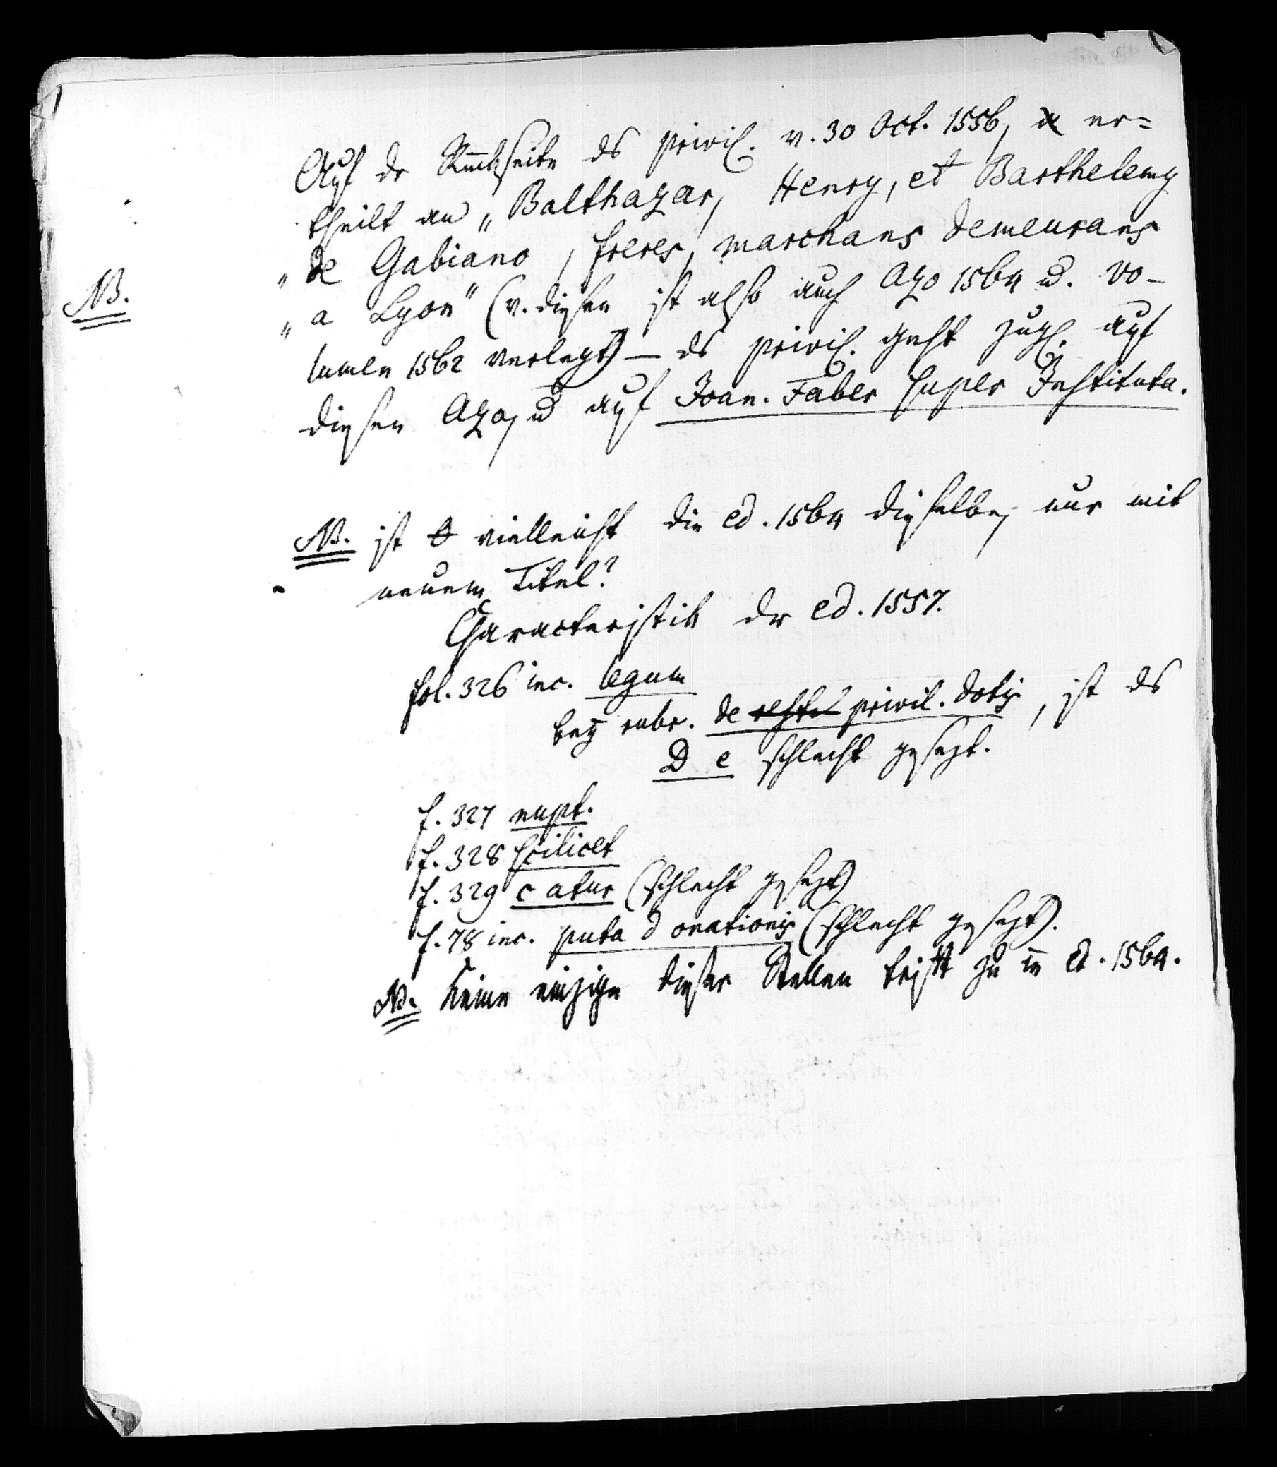 Auf dr Rückseite ds privil. v. 30 Oct. 1556, er=
theilt an „Balthazar, Henry, et Barthelemy
„de Gabiano, freres, marchans demeurans
NB.
„a Lyon" (v. diesen ist also auch Azo 1564 u. Vo-
lumen 1562 verlegt) — ds privil. geht zugl. auf
diesen Azo, u auf Joan. Faber super Instituta.
NB. ist vielleicht die ed. 1564 dieselbe, nur mit
neuem Titel?
Characteristik dr ed. 1557.
fol. 326 inc. legum
bey rubr. de privil. dotis, ist ds
D e schlecht gesezt.
f. 327 nupt.
f. 328 scilicet
f. 329 c atur (schlecht gesezt)
f. 78 inc. puta d orationis (schlecht gesezt).
NB. Keine einzige dieser Stellen trifft zu in ed. 1564.